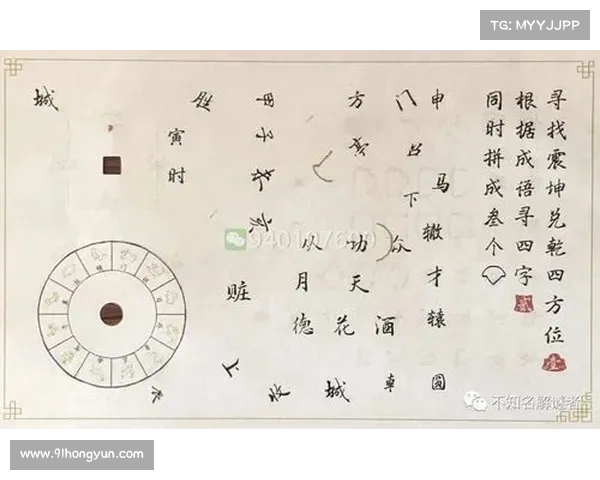 TG: MYYJJPP
寻找震坤兑乾四方位壹
根据成语寻四字贰
同时拼成叁个
申
马辙才辕圆
门
下众
酒車
方
功天花城
从月德收
子
亥
赃上
寅时
城
不知名解谜者
www.91hongyun.com